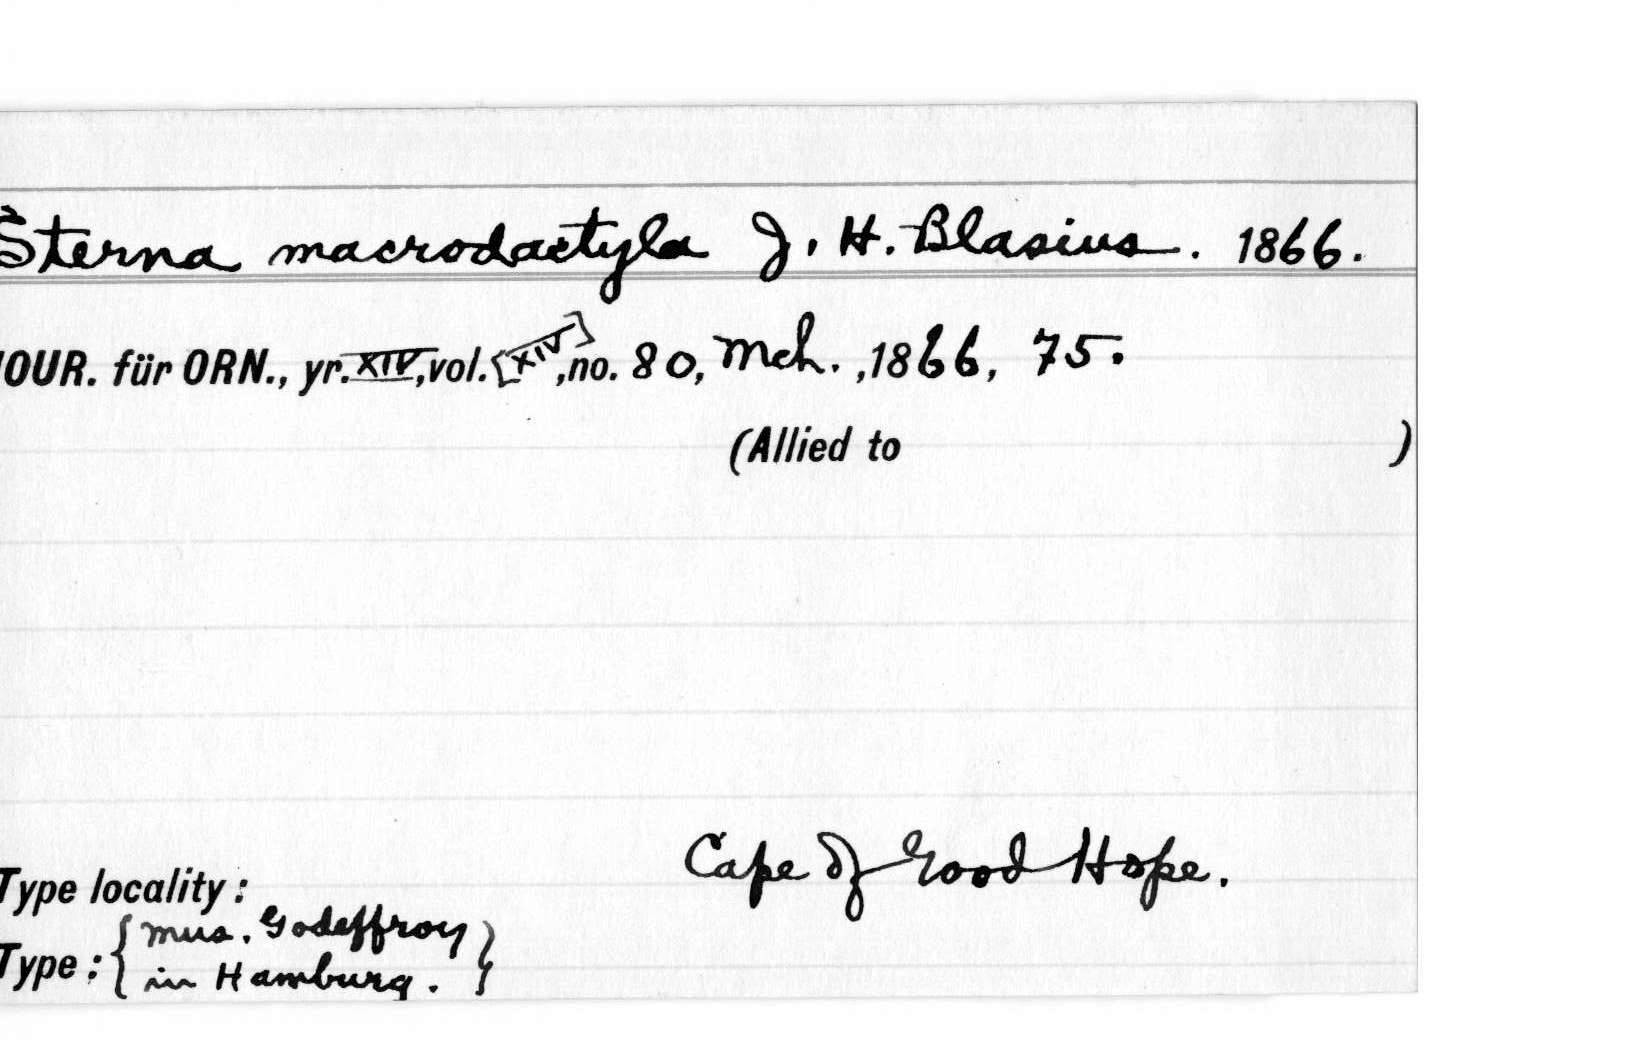 Sterna macrodactyla J. H. Blasius. 1866.
JOUR. für ORN., yr. XIV, vol. [XIV], no. 80, Mch. , 1866, 75.
(Allied to )
Type locality: Cape of Good Hope.
Type: { Mus. Godeffroy
in Hamburg. }